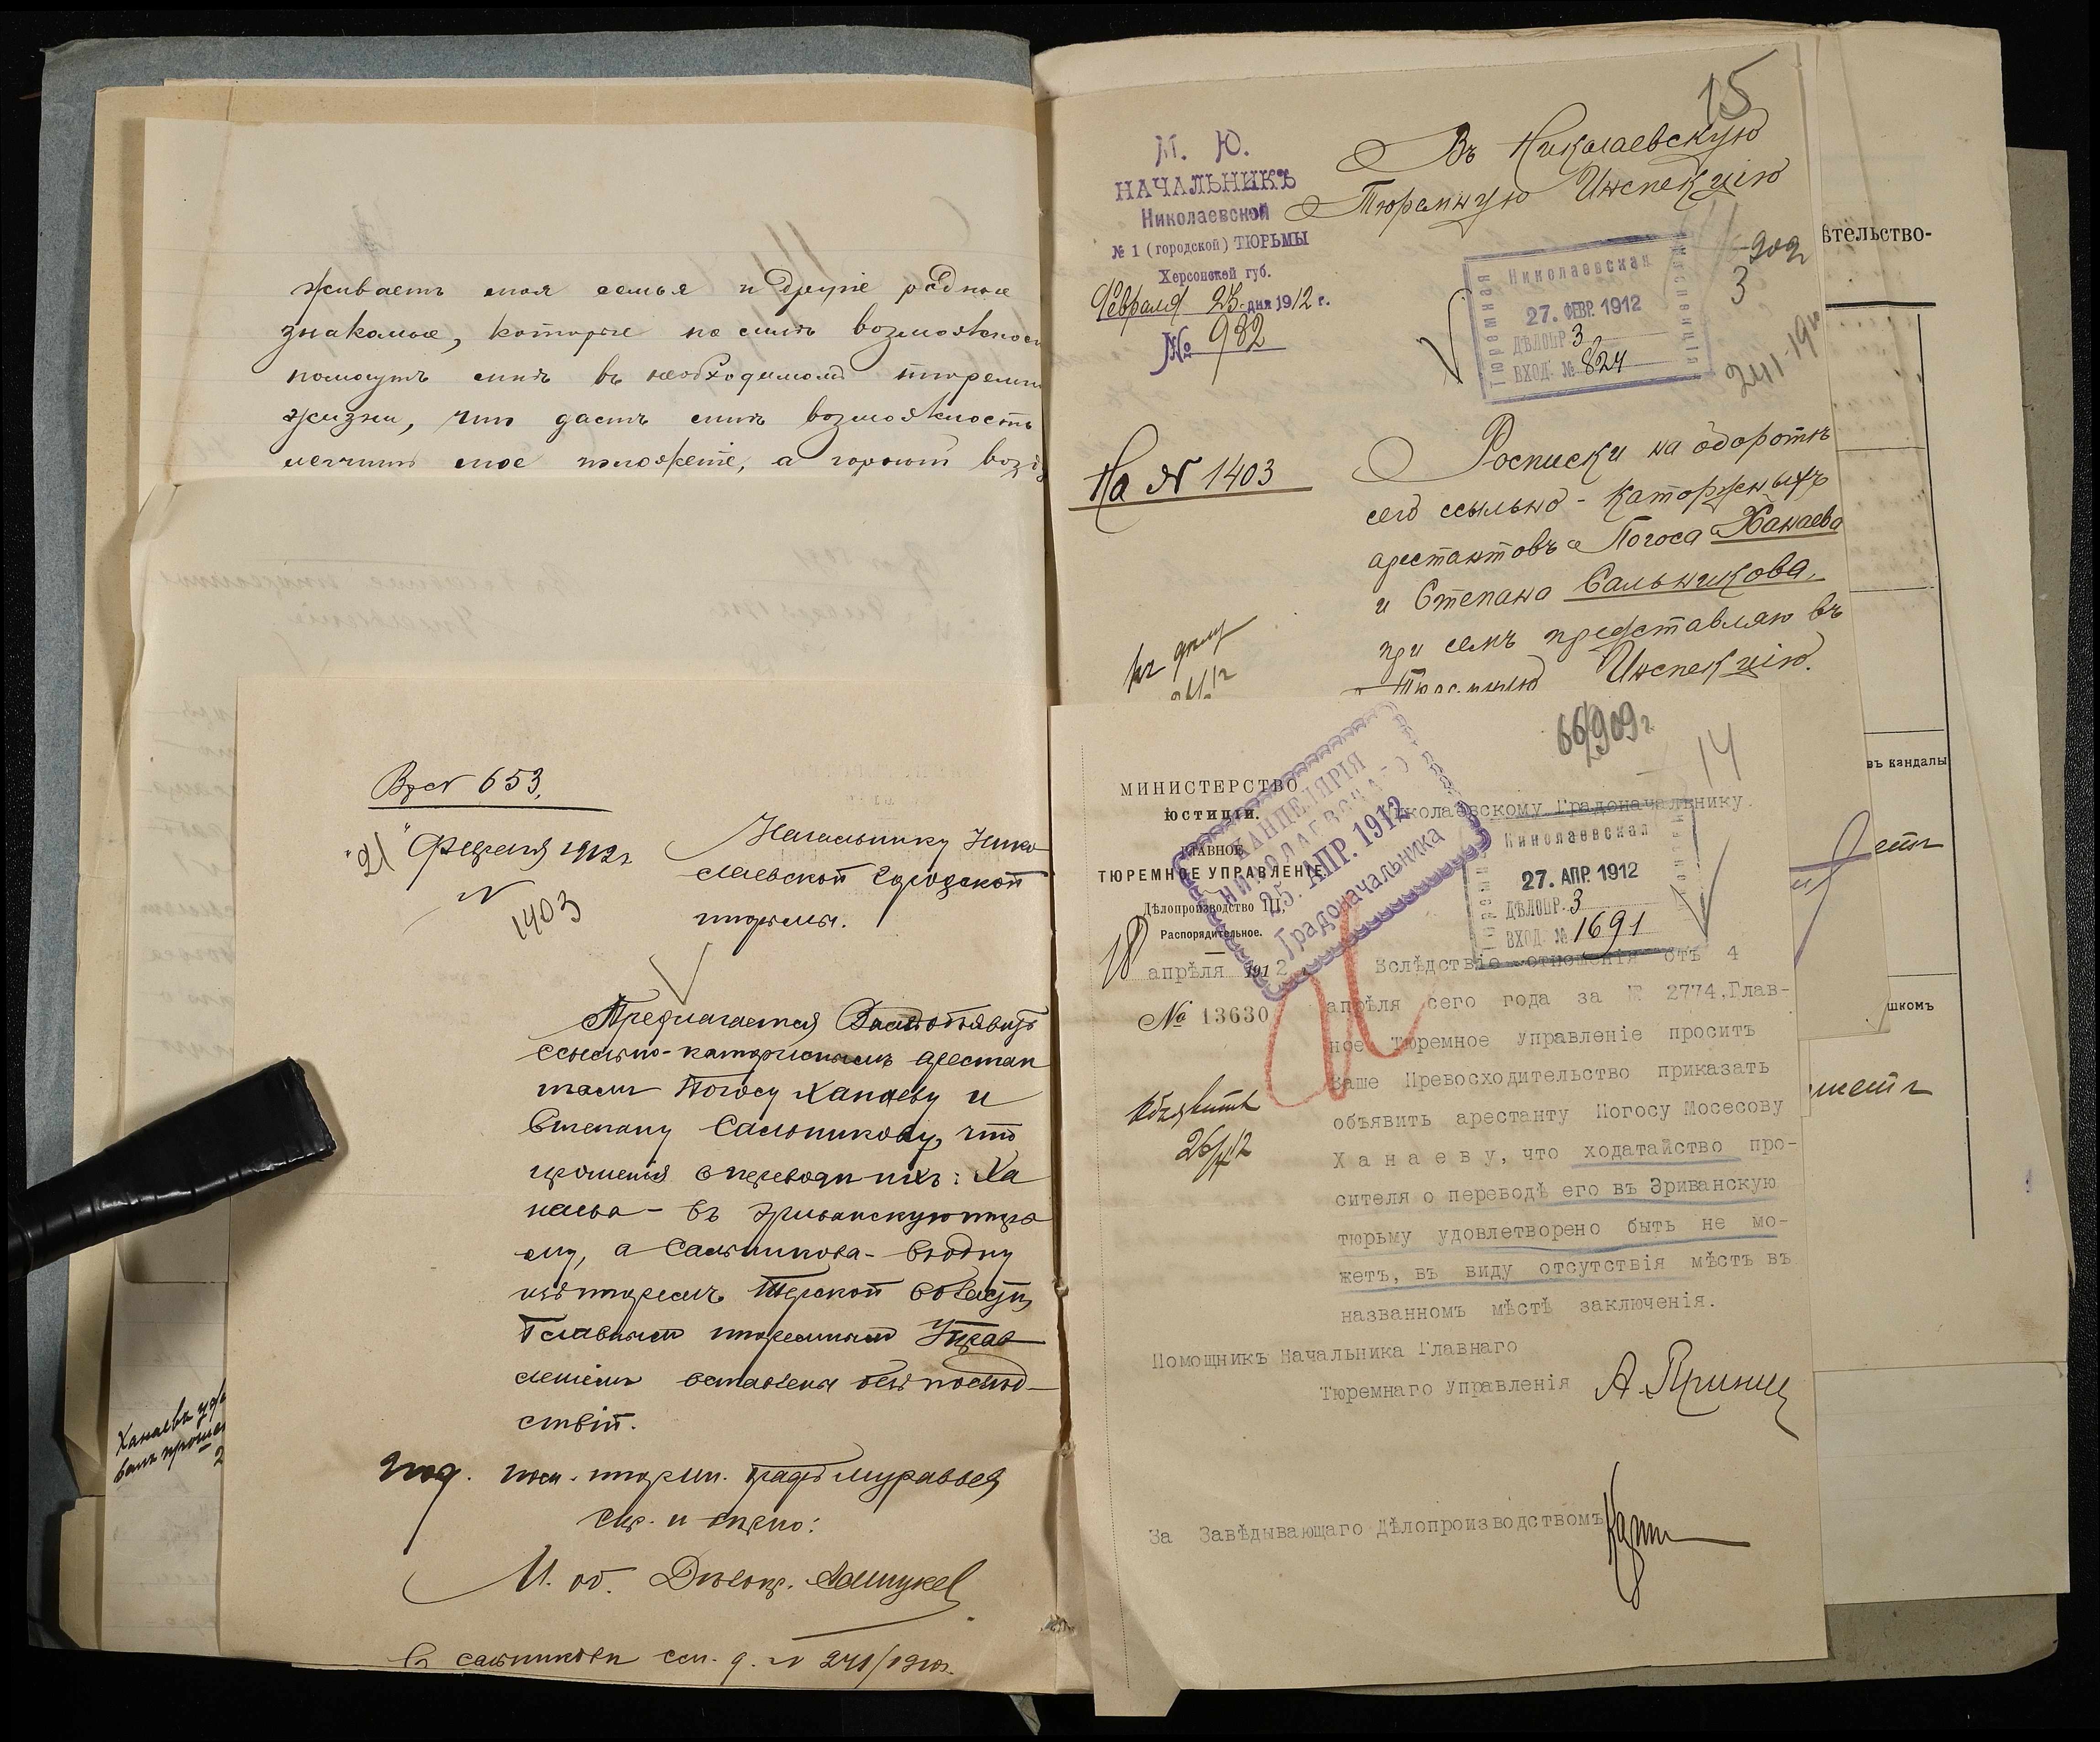 живаетъ моя семья и другіе родные
знакомые, которые по мѣрѣ возможнос
помогутъ мнѣ въ необходимомъ тюремн
жизни, что дастъ мнѣ возможность
мое положеніе, а
Вх № 653.
"21" Февраля 1912 г.
№
1403
Начальнику Нико
лаевской городской
тюрьмы.
Предлагается Вамъ объявить
ссыльно-каторжнымъ арестан
тамъ Погосу Ханаеву и
Степану Сальникову, что
прошенія о переводѣ ихъ: Ха
наева - въ Эриванскую тюрь
му, а Сальникова - въ одну
изъ тюремъ Терской области,
Главнымъ тюремнымъ Управ
леніемъ оставлены безъ послѣд-
ствій.
Под. пом. тюрем. Графъ Муравьев
Скр. и вѣрно:
И. об. Дѣлопр.
О Сальникове см. д. № 241/1910 г.
Ханаевъ
15
М. Ю.
НАЧАЛЬНИКЪ
Николаевской
№ 1 (городской) ТЮРЬМЫ
Херсонской губ.
Февраля 25 дня 1912 г.
№ 982
Въ Николаевскую
Тюремную Инспекцію
Николаевская
Тюремная
Инспекція
27. ФЕВР. 1912
ДѢЛОПР. 3
ВХОД. № 824
909
3
241-19
На № 1403
Росписки на оборотѣ
сего ссыльно-каторжныхъ
арестантовъ Погоса Ханаева
и Степана Сальникова,
при семъ представляю въ
Тюремную Инспекцію.
Къ дѣлу
66/909 г.
14
МИНИСТЕРСТВО
ЮСТИЦІИ.
ГЛАВНОЕ
ТЮРЕМНОЕ УПРАВЛЕНІЕ
Дѣлопроизводство III,
Распорядительное.
18 апрѣля 1912 г.
№ 13630
КАНЦЕЛЯРІЯ
НИКОЛАЕВСКАГО
25. АПР. 1912
Градоначальника
Николаевскому Градоначальнику.
Николаевская
27. АПР. 1912
ДѢЛОПР. 3
ВХОД. № 1691
Вслѣдствіе отношенія отъ 4
апрѣля сего года за № 2774, Глав-
ное Тюремное Управленіе проситъ
Ваше Превосходительство приказать
объявить арестанту Погосу Мосесову
Ханаеву, что ходатайство про-
сителя о переводѣ его въ Эриванскую
тюрьму удовлетворено быть не мо-
жетъ, въ виду отсутствія мѣстъ въ
названномъ мѣстѣ заключенія.
Объявить
Помощникъ Начальника Главнаго
Тюремнаго Управленія
За Завѣдывающаго Дѣлопроизводствомъ
ѣтельство-
въ кандалы
шкомъ